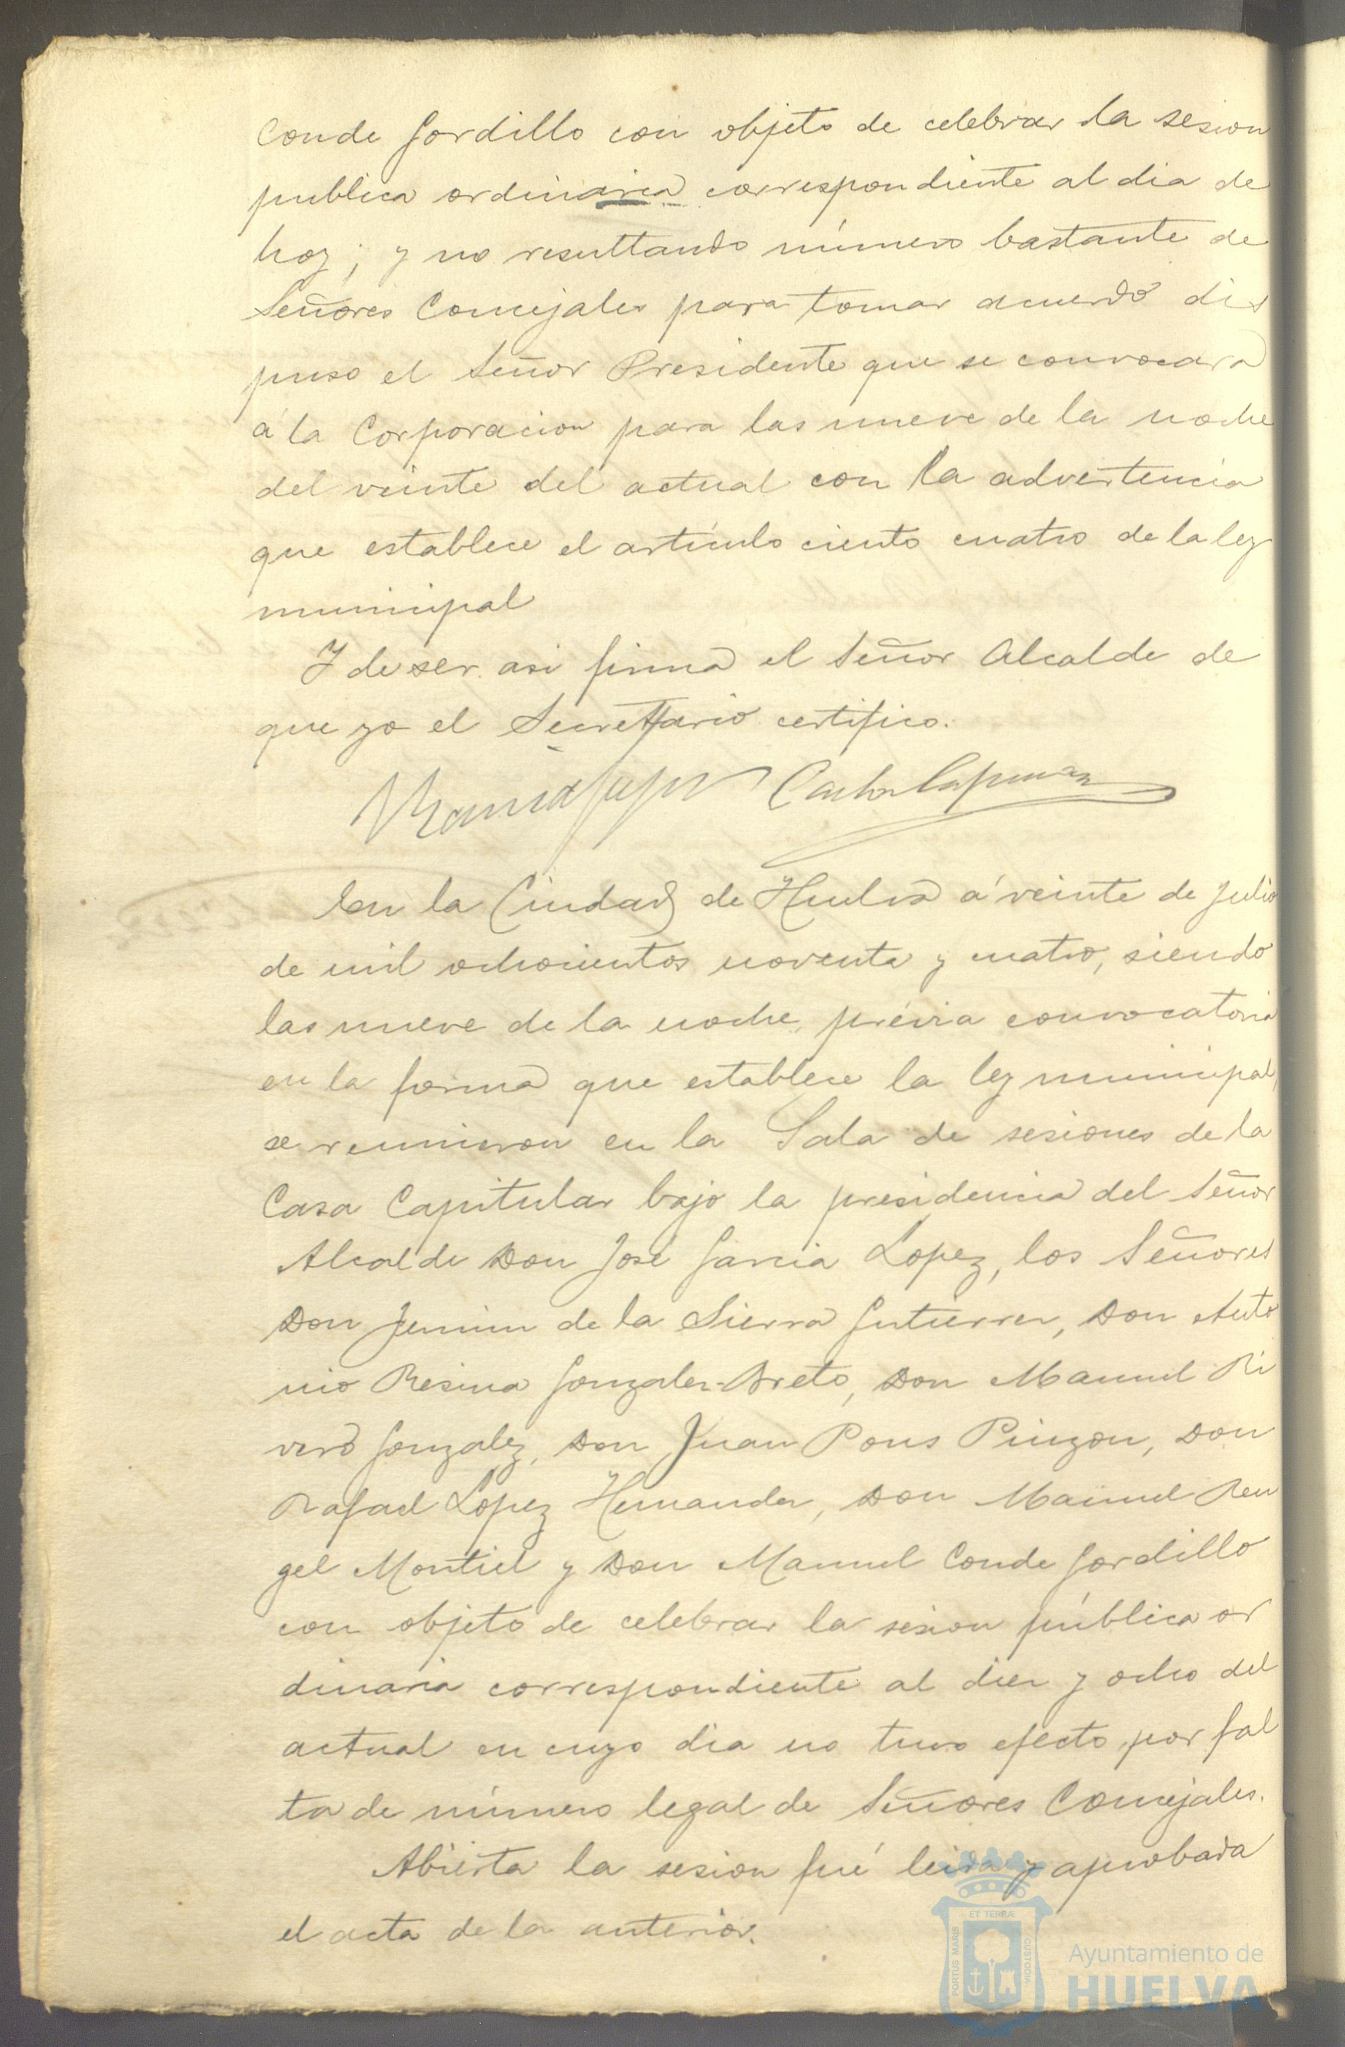 Conde Gordillo con objeto de celebrar la sesion
publica ordinaria correspondiente al dia de
hoy; y no resultando número bastante de
Señores Concejales para tomar acuerdo dis
puso el Señor Presidente que se convocara
á la Corporacion para las nueve de la noche
del veinte del actual con la advertencia
que establece el artículo ciento cuatro de la ley
municipal
Y de ser asi firma el Señor Alcalde de
que yo el Secretario certifico.
En la Ciudad de Huelva á veinte de Julio
de mil ochocientos noventa y cuatro, siendo
las nueve de la noche, prévia convocatoria
en la forma que establece la ley municipal,
se reunieron en la Sala de sesiones de la
Casa Capitular bajo la presidencia del Señor
Alcalde Don José Garcia Lopez, los Señores
Don de la Sierra Gutierrez, Don Anto
nio Resina Gonzalez, Don Manuel Ri
vero Gonzalez, Don Juan Pons Pinzon, Don
Rafael Lopez Hernandez, Don Manuel Ren
gel Montiel y Don Manuel Conde Gordillo
con objeto de celebrar la sesion pública or
dinaria correspondiente al diez y ocho del
actual en cuyo dia no tuvo efecto por fal
ta de número legal de Señores Concejales.
Abierta la sesion fué leida y aprobada
el acta de la anterior.
PORTUS MARIS
ET TERRÆ
CUSTODIA
Ayuntamiento de
HUELVA